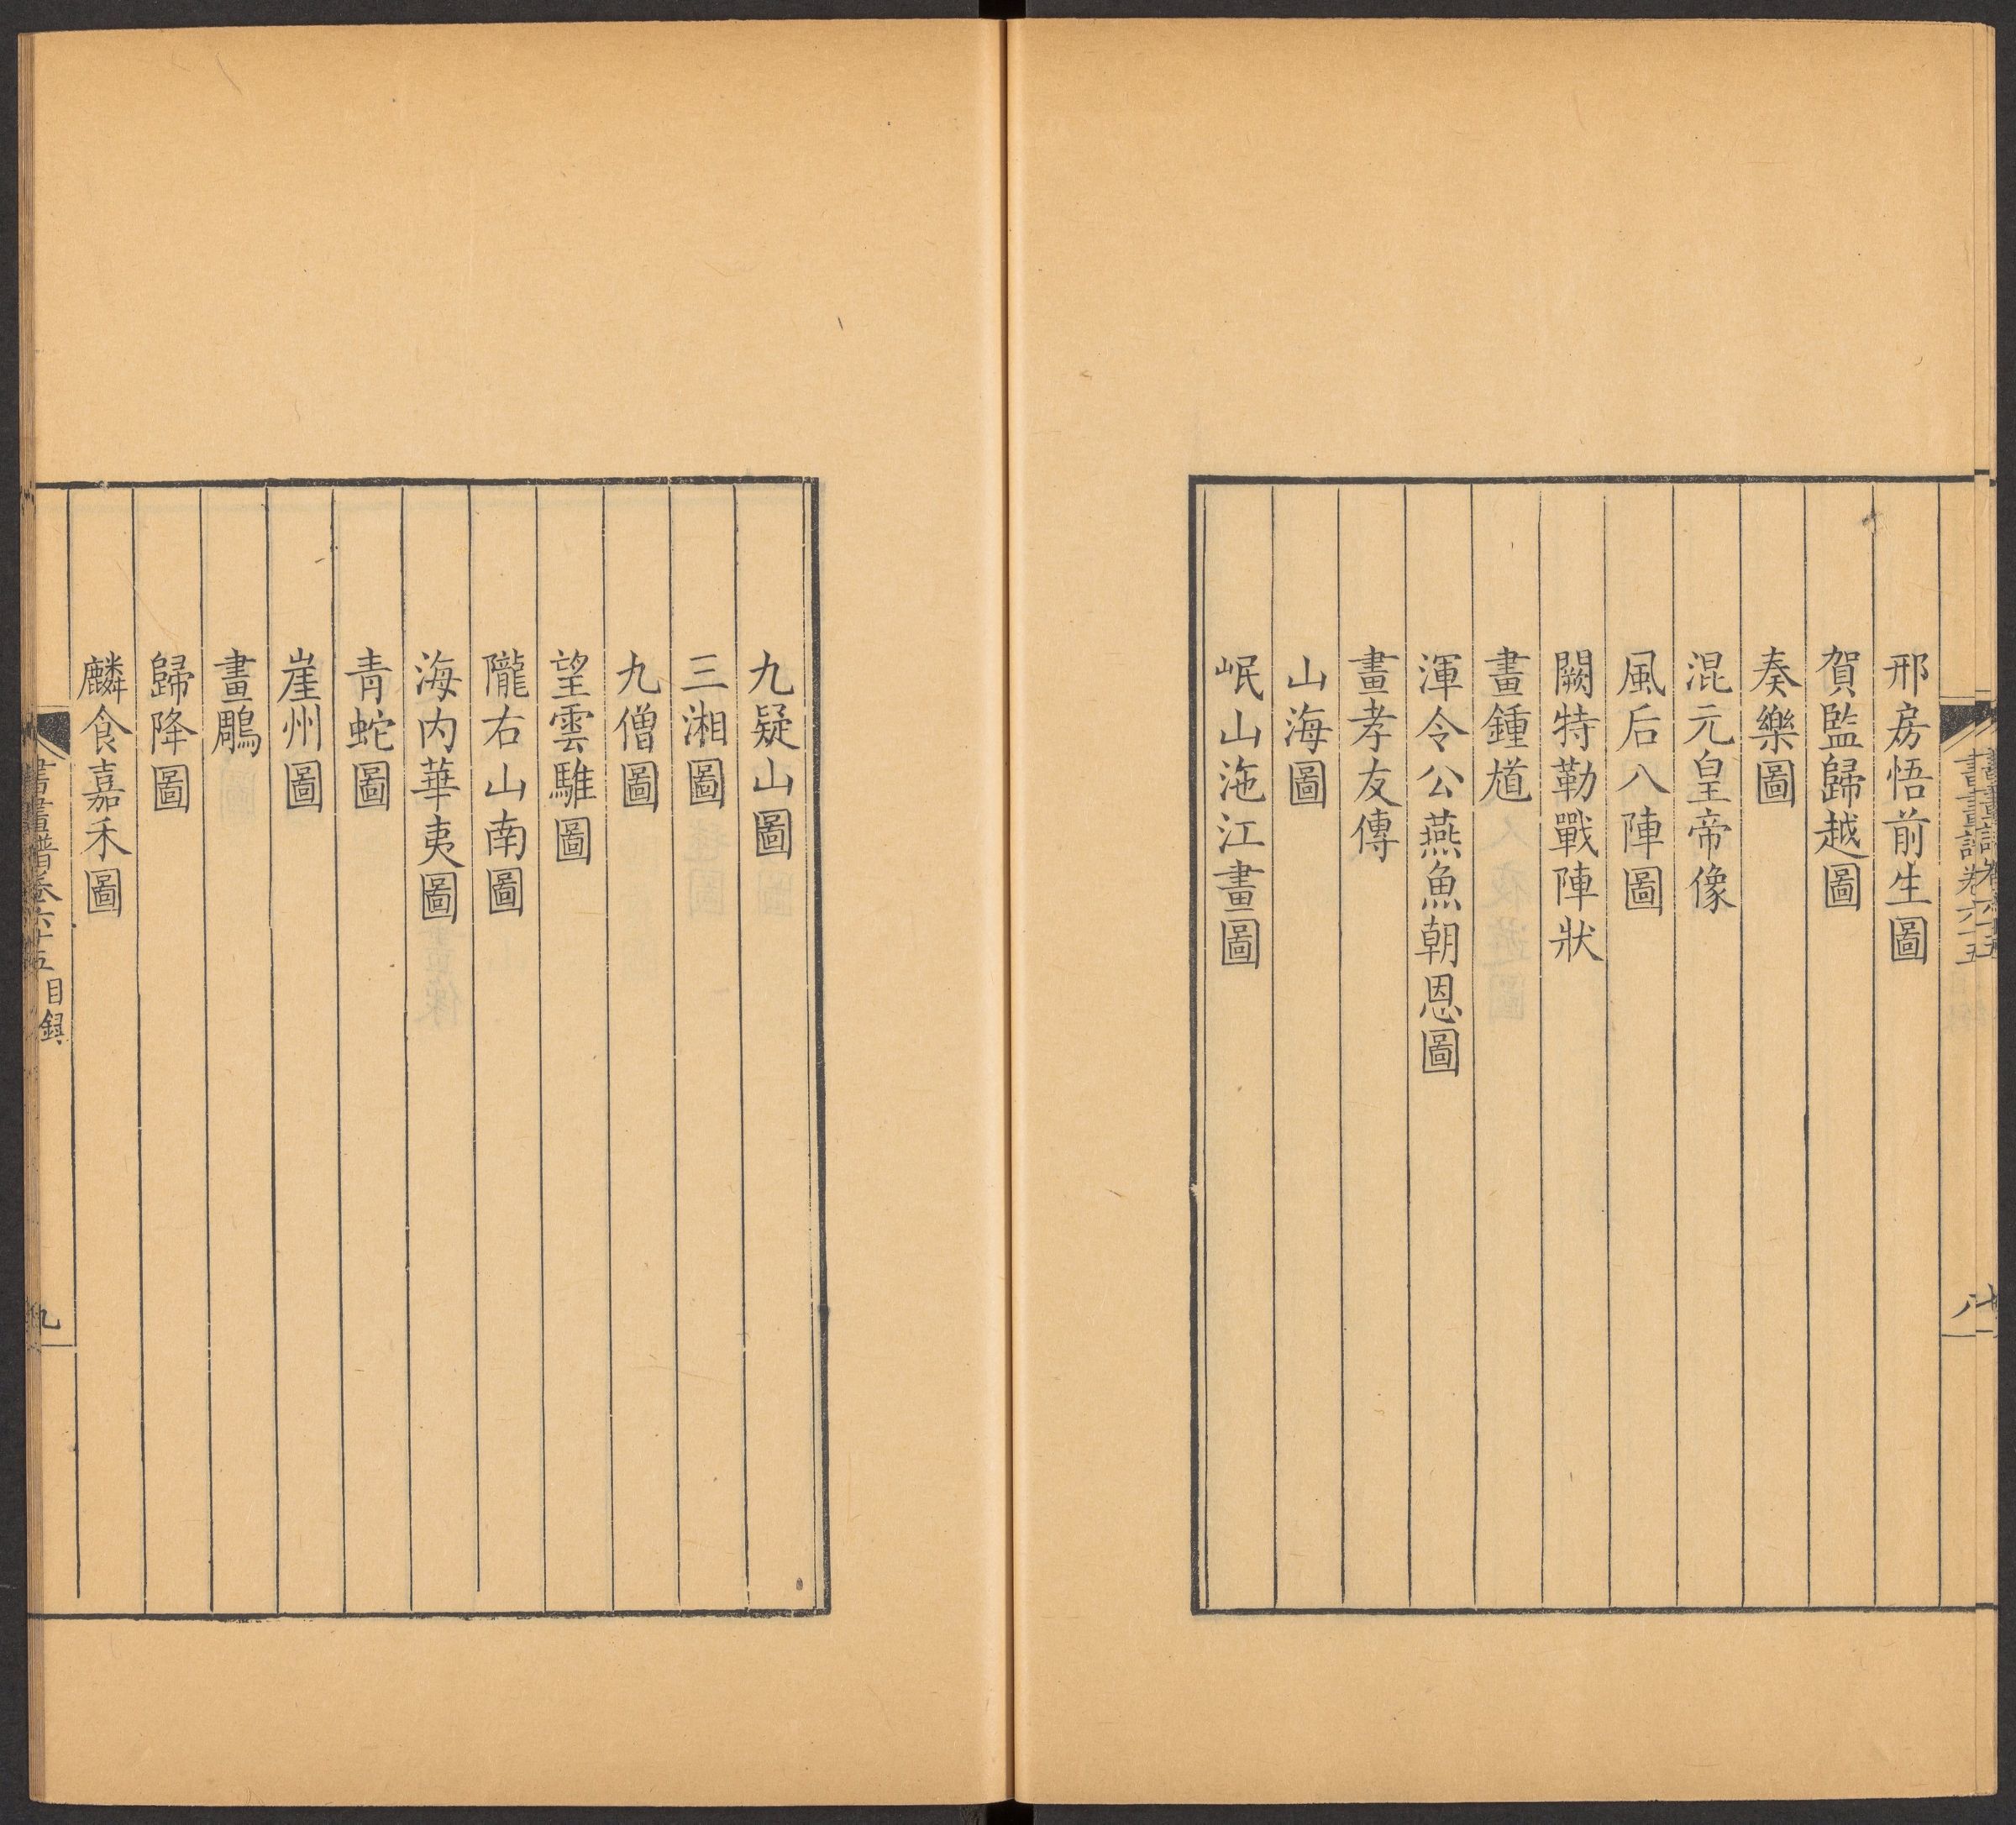 邢房悟前生圖
賀監歸越圖
奏樂圖
混元皇帝像
風后八陣圖
闕特勒戰陣狀
畫鍾馗
渾令公燕魚朝恩圖
畫孝友傳
山海圖
岷山沲江畫圖
八
九疑山圖
三湘圖
九僧圖
望雲騅圖
隴右山南圖
海內華夷圖
青蛇圖
崖州圖
畫鵰
歸降圖
麟食嘉禾圖
書畫譜卷六十五 目錄
九